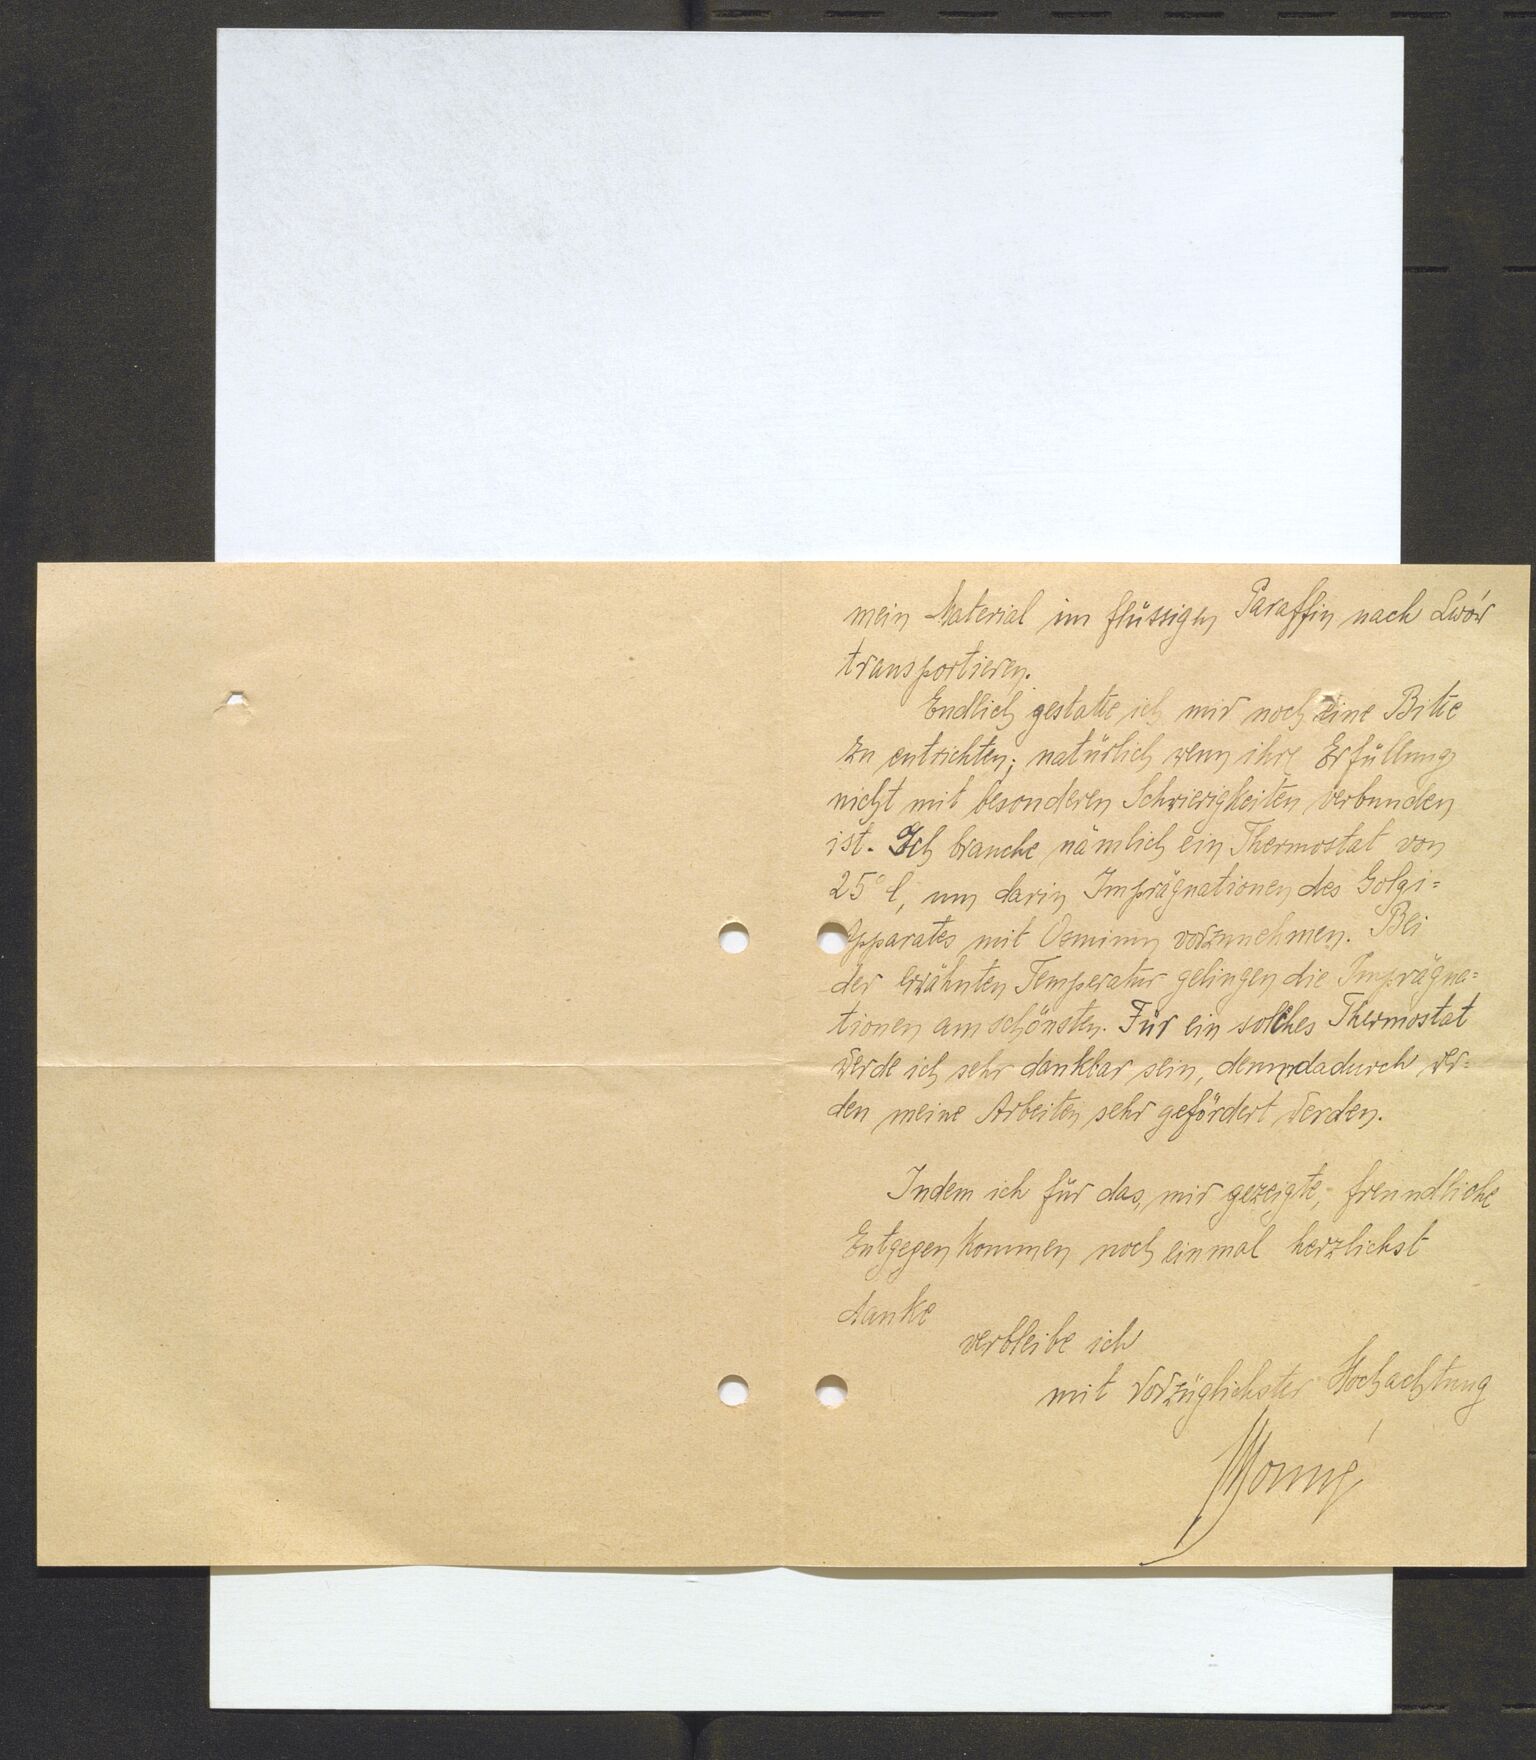 mein Material im flüssigen Paraffin nach Lwów
transportieren.
Endlich gestatte ich mir noch eine Bitte
zu entrichten; natürlich wenn ihre Erfüllung
nicht mit besonderen Schwierigkeiten verbunden
ist. Ich brauche nämlich ein Thermostat von
25° C, um darin Imprägnationen des Golgi=
Apparates mit Osmium vorzunehmen. Bei
der erwähnten Temperatur gelingen die Imprägna=
tionen am schönsten. Für ein solches Thermostat
werde ich sehr dankbar sein, denn dadurch wer=
den meine Arbeiten sehr gefördert werden.
Indem ich für das, mir gezeigte, freundliche
Entgegenkommen noch einmal herzlichst
danke
verbleibe ich
mit vorzüglichster Hochachtung